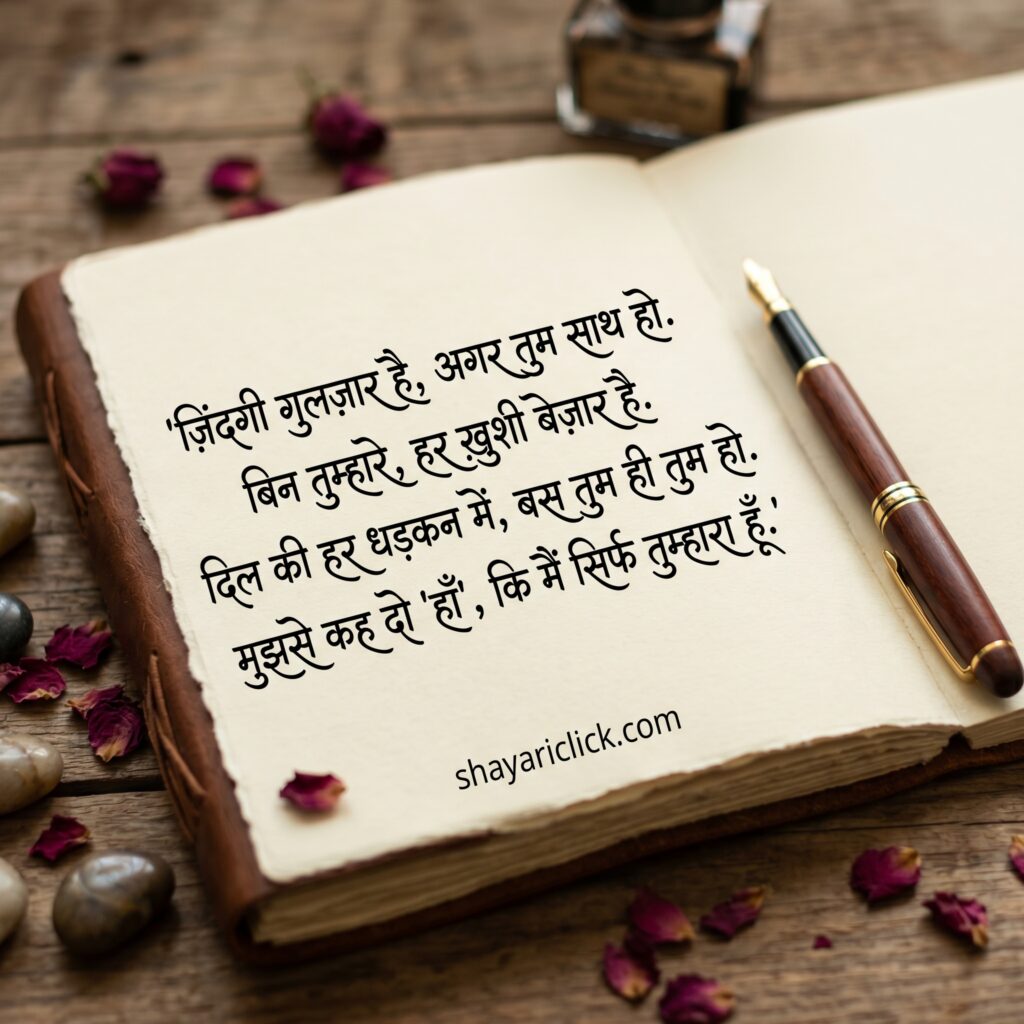 'ज़िंदगी गुलज़ार है, अगर तुम साथ हो.
बिन तुम्हारे, हर ख़ुशी बेज़ार है.
दिल की हर धड़कन में, बस तुम ही तुम हो.
मुझसे कह दो 'हाँ', कि मैं सिर्फ तुम्हारा हूँ.'
shayariclick.com